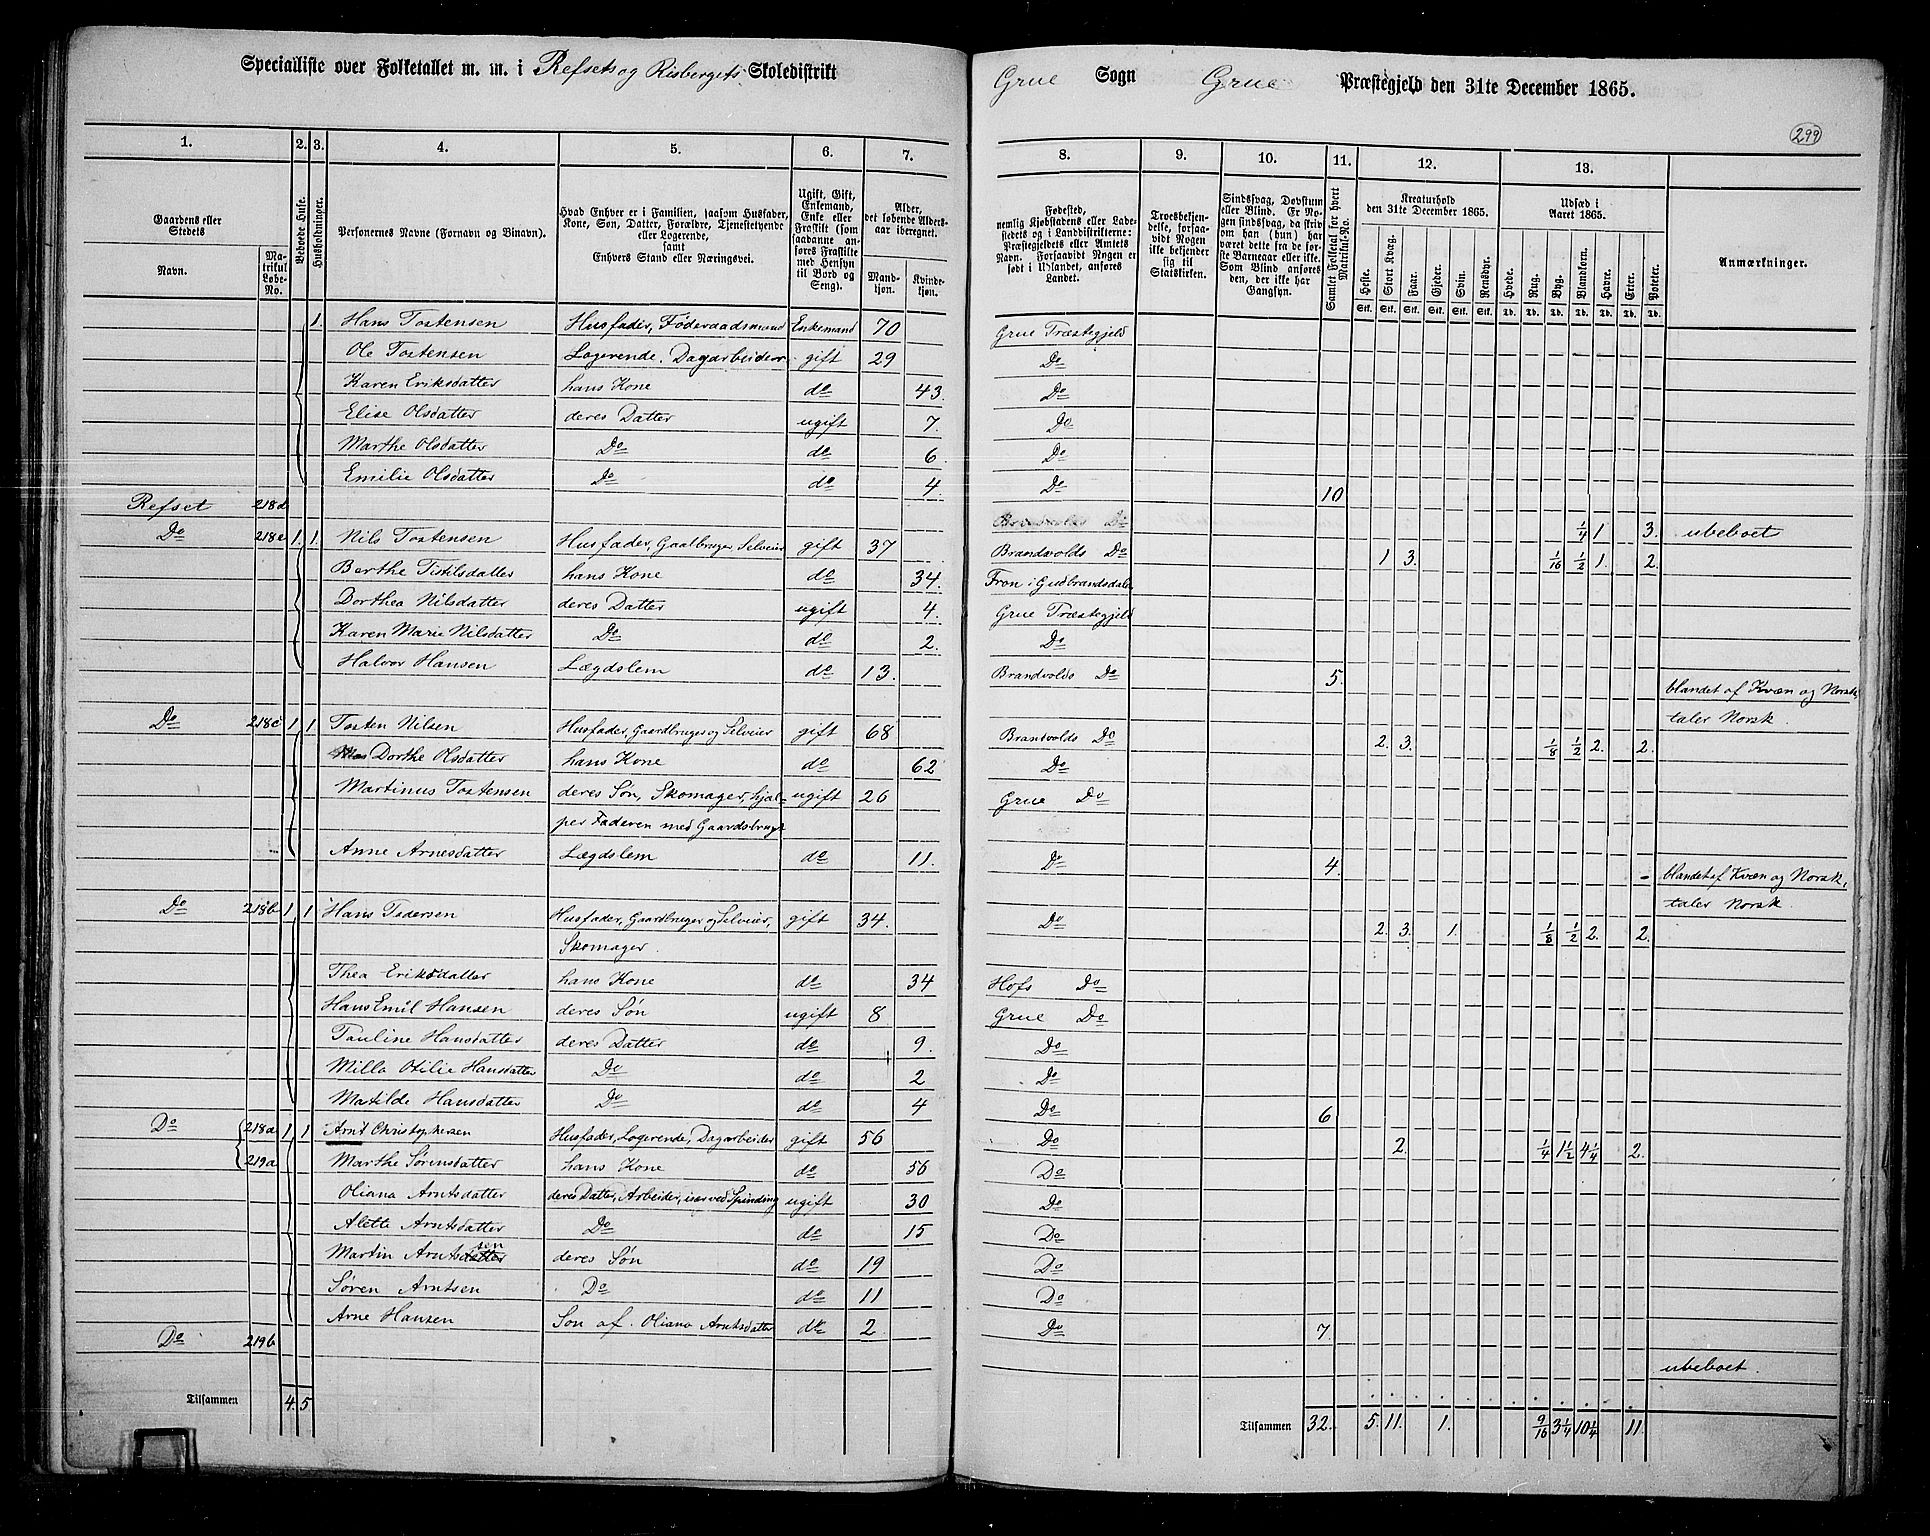 Specialliste over Folketallet m. m. i Refsets og Risbergets Skoledistrikt Grue Sogn Grue Præstegjeld den 31te December 1865.
299
1. 2. 3. 4. 5. 6. 7. 8. 9. 10. 11. 12. 13.
Gaardens eller Stedets
Navn.
Matrikul Løbe-No.
Beboede Huse.
Husholdninger.
Personernes Navne (Fornavn og Binavn).
Hvad Enhver er i Familien, saasom Husfader, Kone, Søn, Datter, Forældre, Tjenestetyende eller Logerende, samt Enhvers Stand eller Næringsvei.
Ugift, Gift, Enkemand, Enke eller Fraskilt (som saadanne anføres Fraskilte med Hensyn til Bord og Seng).
Alder, det løbende Aldersaar iberegnet.
Mandkjøn. Kvindekjøn.
Fødested, nemlig Kjøbstadens eller Ladestedets og i Landdistrikterne: Præstegjeldets eller Amtets Navn. Forsaavidt Nogen er født i Udlandet, anføres Landet.
Troesbekjendelse, forsaavidt Nogen ikke bekjender sig til Statskirken.
Sindssvag, Døvstum eller Blind. Er Nogen sindssvag, da skrives om han (hun) har været dette fra de første Barneaar eller ikke. Som Blind anføres den, der ikke har Gangsyn.
Samlet Folketal for hvert Matrikul-No.
Kreaturhold den 31te December 1865.
Heste. Stort Kvæg. Faar. Gjeder. Svin. Rensdyr.
Udsæd i Aaret 1865.
Hvede. Rug. Byg. Blandkorn. Havre. Erter. Poteter.
Stk. Stk. Stk. Stk. Stk. Stk. Td. Td. Td. Td. Td. Td. Td.
Anmærkninger.
1. Hans Tostensen Husfader, Føderaadsmand Enkemand 70 Grue Præstegjeld
Ole Tostensen Logerende. Dagarbeider gift 29 Do
Karen Eriksdatter hans Kone do 43. Do
Elise Olsdatter deres Datter ugift 7. Do
Marthe Olsdatter Do do 6. Do
Emilie Olsdatter Do do 4. Do 10
Refset 218d Do 1/4 1 3. ubeboet
Do 218e 1. 1. Nils Tostensen Husfader, Gaardbruger Selveier gift 37 Brandvolds Do 1 3. 1/16 1/2 1. 2.
Berthe Tistilsdatter hans Kone do 34. Fron i Gudbrandsdalen
Dorthea Nilsdatter deres Datter ugift 4. Grue Præstegjeld
Karen Marie Nilsdatter Do do 2. Do
Halvor Hansen Lægdslem do 13. Brandvolds Do 5. blandet af Kvæn og Norsk,
taler Norsk.
Do 218c 1 1 Tosten Nilsen Husfader, Gaardbruger og Selveier gift 68 Brandvolds Do 2. 3. 1/8 1/2 2. 2.
Dorthe Olsdatter hans Kone do 62 Do
Martinus Tostensen deres Søn, Skomager, hjæl- ugift 26 Grue Do
per Faderen med Gaardsbruget
Anne Arnesdatter Lægdslem do 11. Do 4 blandet af Kvæn og Norsk,
taler Norsk.
Do 218b 1 1 Hans Pedersen Husfader, Gaardbruger og Selveier, gift 34. Do 2. 3. 1. 1/8 1/2 2. 2.
Skomager.
Thea Eriksdatter hans Kone do 34 Hofs Do
Hans Emil Hansen deres Søn ugift 8 Grue Do
Pauline Hansdatter deres Datter do 9. Do
Milla Otilie Hansdatter Do do 2 Do
Matilde Hansdatter Do do 4 Do 6
Do 218a 1 1 Arnt Christophersen Husfader, Logerende, Dagarbeider gift 56 Do 2. 1/4 1 1/2 4 1/4 2.
219a Marthe Sørensdatter hans Kone do 56 Do
Oliana Arntsdatter deres Datter, Arbeider, især ved Spinding ugift 30 Do
Alette Arntsdatter Do do 15 Do
Martin Arntsdatter sen deres Søn do 19 Do
Søren Arntsen Do do 11 Do
Arne Hansen Søn af Oliana Arntsdatter do 2 Do 7.
Do 219b ubeboet.
Tilsammen 4. 5 Tilsammen 32. 5. 11. 1. 9/16 3 1/4 10 1/4 11.